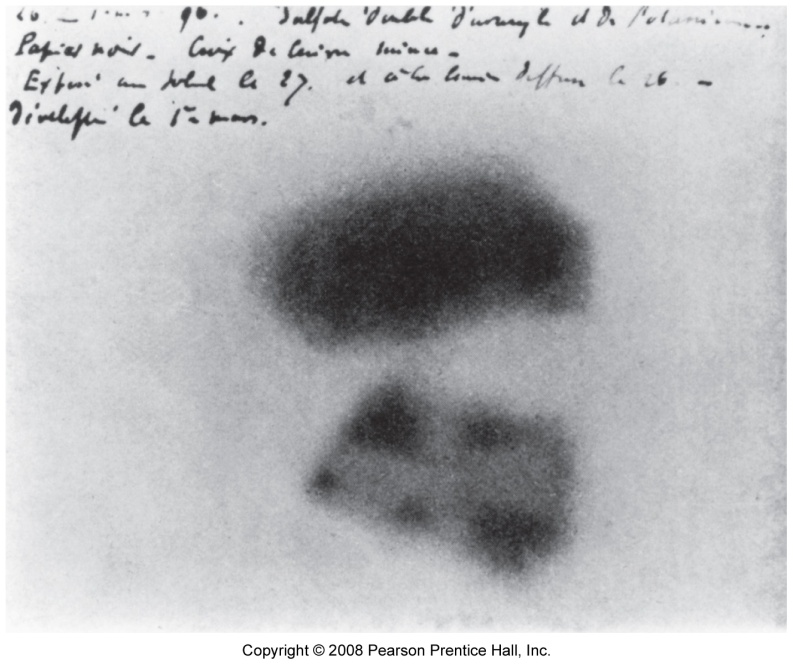 96. Sulfate double d'uranyle et de Potassium.
Papier noir - Croix de Cuivre mince -
Exposé au soleil le 27. et à la lumière diffuse le 26 -
Développé le 1er mars.
Copyright © 2008 Pearson Prentice Hall, Inc.